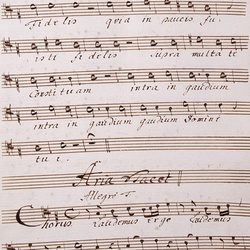 Fidelis quia in paucis fu-
isti fidelis supra multa te
Constituam intra in gaudium
intra in gaudium gaudium Domini
tui.
Aria
Allegro
Chorus. Laudemus ergo Laudemus